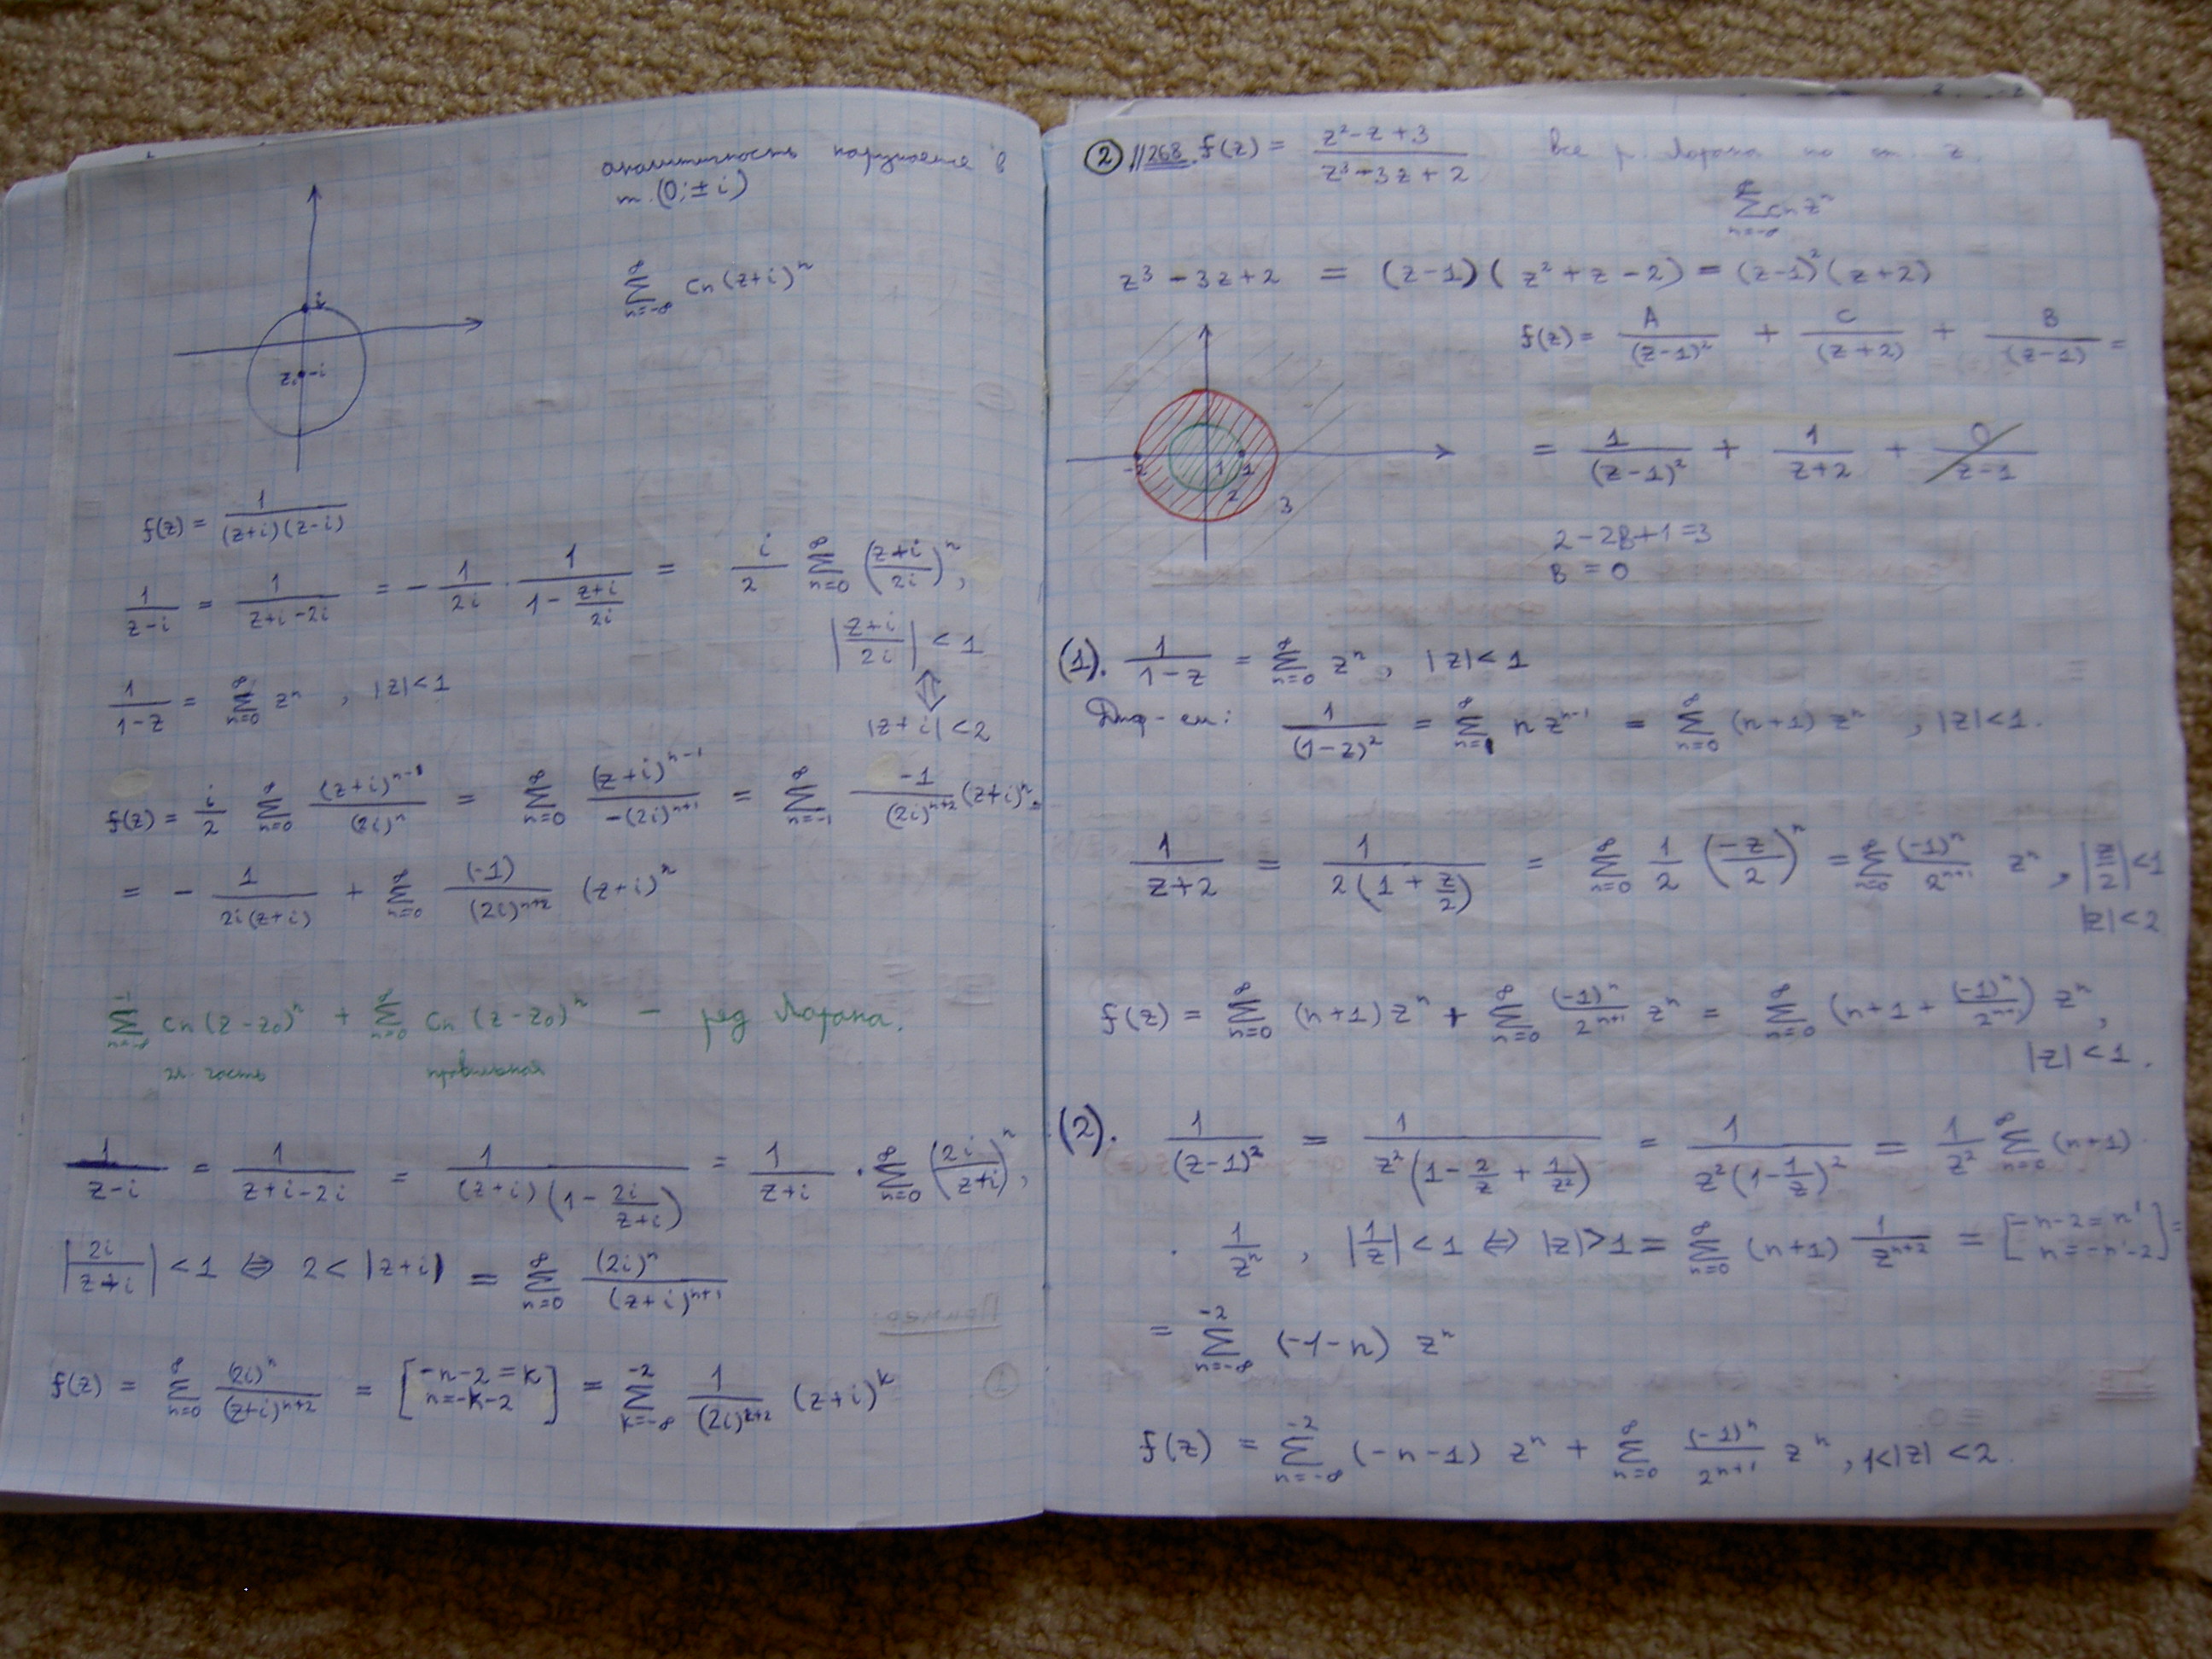 аналитичность нарушается в
т. (0; ± i)
i
z₀ -i
∑_{n=-∞}^{∞} cn (z+i)^n
f(z) = 1/((z+i)(z-i))
1/(z-i) = 1/(z+i-2i) = - 1/(2i) · 1/(1 - (z+i)/(2i)) = i/2 ∑_{n=0}^{∞} ((z+i)/(2i))^n,
|(z+i)/(2i)| < 1
⇕
|z+i| < 2
1/(1-z) = ∑_{n=0}^{∞} z^n , |z|<1
f(z) = i/2 ∑_{n=0}^{∞} (z+i)^{n-1}/(2i)^n = ∑_{n=0}^{∞} (z+i)^{n-1}/(-(2i)^{n+1}) = ∑_{n=-1}^{∞} -1/(2i)^{n+2} (z+i)^n =
= - 1/(2i(z+i)) + ∑_{n=0}^{∞} (-1)/(2i)^{n+2} (z+i)^n
∑_{n=-∞}^{-1} cn (z-z₀)^n + ∑_{n=0}^{∞} cn (z-z₀)^n - ряд Лорана.
гл. часть правильная
1/(z-i) = 1/(z+i-2i) = 1/((z+i)(1 - 2i/(z+i))) = 1/(z+i) · ∑_{n=0}^{∞} (2i/(z+i))^n,
|2i/(z+i)| < 1 ⇔ 2 < |z+i| = ∑_{n=0}^{∞} (2i)^n/(z+i)^{n+1}
f(z) = ∑_{n=0}^{∞} (2i)^n/(z+i)^{n+2} = [-n-2=k n=-k-2] = ∑_{k=-∞}^{-2} 1/(2i)^{k+2} (z+i)^k
② //268. f(z) = (z²-z+3)/(z³-3z+2) все р. Лорана по ст. z.
∑_{n=-∞}^{∞} cn z^n
z³-3z+2 = (z-1)(z²+z-2) = (z-1)²(z+2)
f(z) = A/(z-1)² + C/(z+2) + B/(z-1) =
-2 1 1 2 3
= 1/(z-1)² + 1/(z+2) + 0/(z-1)
2-2B+1=3
B = 0
(1). 1/(1-z) = ∑_{n=0}^{∞} z^n, |z|<1
Диф-ем: 1/(1-z)² = ∑_{n=1}^{∞} n z^{n-1} = ∑_{n=0}^{∞} (n+1) z^n , |z|<1.
1/(z+2) = 1/(2(1+z/2)) = ∑_{n=0}^{∞} 1/2 (-z/2)^n = ∑_{n=0}^{∞} (-1)^n/2^{n+1} z^n , |z/2|<1
|z|<2
f(z) = ∑_{n=0}^{∞} (n+1) z^n + ∑_{n=0}^{∞} (-1)^n/2^{n+1} z^n = ∑_{n=0}^{∞} (n+1+(-1)^n/2^{n+1}) z^n,
|z|<1.
(2). 1/(z-1)² = 1/(z²(1-2/z+1/z²)) = 1/(z²(1-1/z)²) = 1/z² ∑_{n=0}^{∞} (n+1)·
· 1/z^n , |1/z|<1 ⇔ |z|>1 = ∑_{n=0}^{∞} (n+1) 1/z^{n+2} = [-n-2=n' n=-n'-2] =
= ∑_{n=-∞}^{-2} (-1-n) z^n
f(z) = ∑_{n=-∞}^{-2} (-n-1) z^n + ∑_{n=0}^{∞} (-1)^n/2^{n+1} z^n , 1<|z|<2.